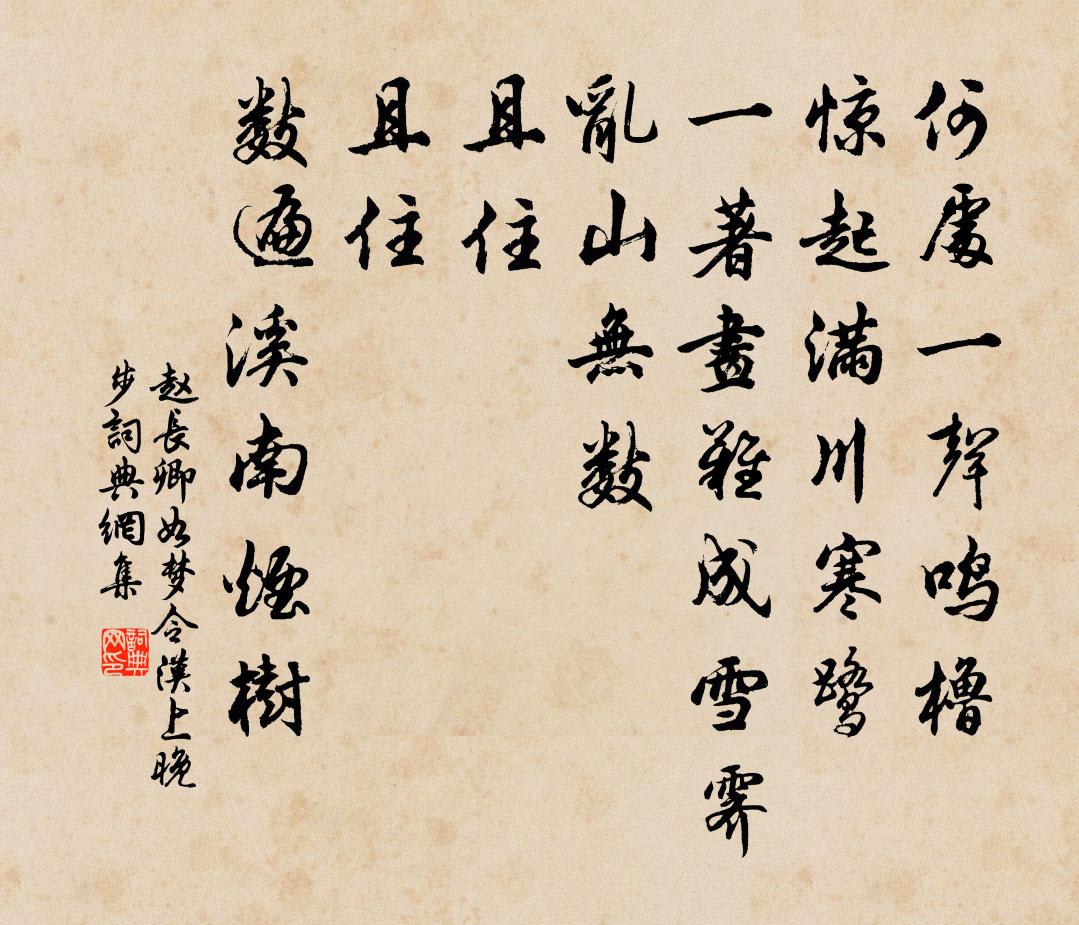 何處一聲鳴櫓
惊起滿川寒鷺
一著畫難成雪霽
亂山無數
且住
且住
數遍溪南煙樹
赵長卿如梦令漢上晚
步詞典網集
詞典网印